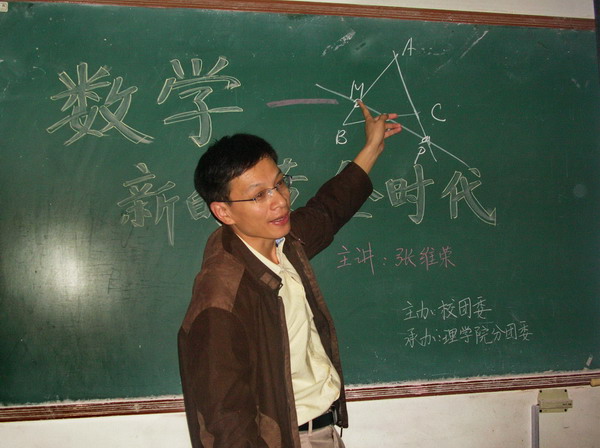 数学——
新的黄金时代
A
M
B
C
P
主讲：张维荣
主办：校团委
承办：理学院分团委